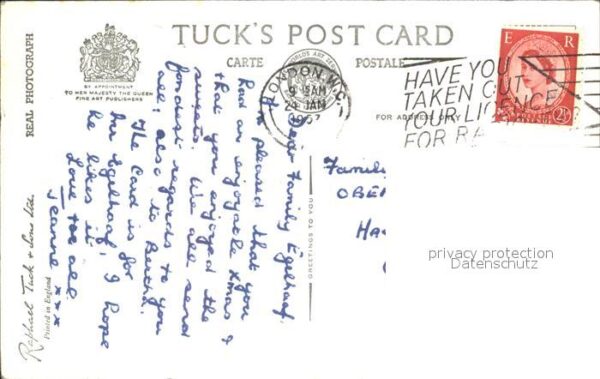 TUCK'S POST CARD
CARTE POSTALE
REAL PHOTOGRAPH
BY APPOINTMENT
TO HER MAJESTY THE QUEEN
FINE ART PUBLISHERS
LONDON W.C.
9 15AM
24 JAN
1957
HAVE YOU
TAKEN OUT
YOUR LICENCE
FOR RA
E R
POSTAGE REVENUE
2½
FOR ADDRESS ONLY
Dear Family Egelhaaf,
I'm pleased that you
had an enjoyable Xmas &
that you enjoyed the
sweets. We all send
fondest regards to you
all, also to Bertha.
The Card is for
Herr Egelhaaf, I hope
he likes it.
Love to all
Jeanne xxx
GREETINGS TO YOU
Famili
OBE
HA
Raphael Tuck & Sons Ltd.
Printed in England
privacy protection
Datenschutz